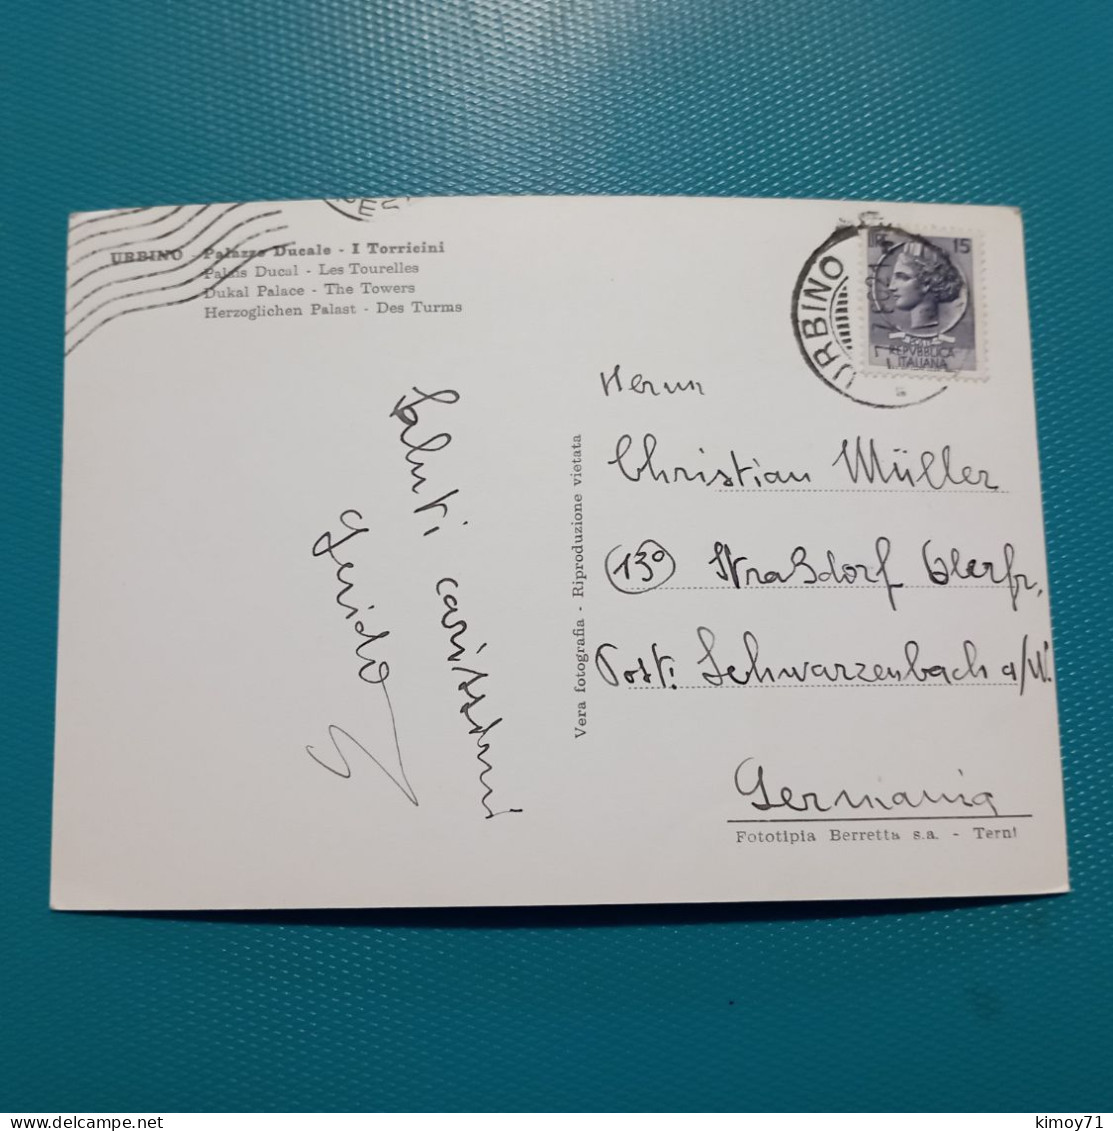 URBINO - Palazzo Ducale - I Torricini
Palais Ducal - Les Tourelles
Dukal Palace - The Towers
Herzoglichen Palast - Des Turms
URBINO
LIRE 15
POSTE
REPVBBLICA
ITALIANA
Saluti carissimi
Guido
Vera fotografia - Riproduzione vietata
Herrn
Christian Müller
(13a) Straßdorf Oberfr.
Post: Schwarzenbach a/W.
Germania
Fototipia Berretta s.a. - Terni
kimoy71